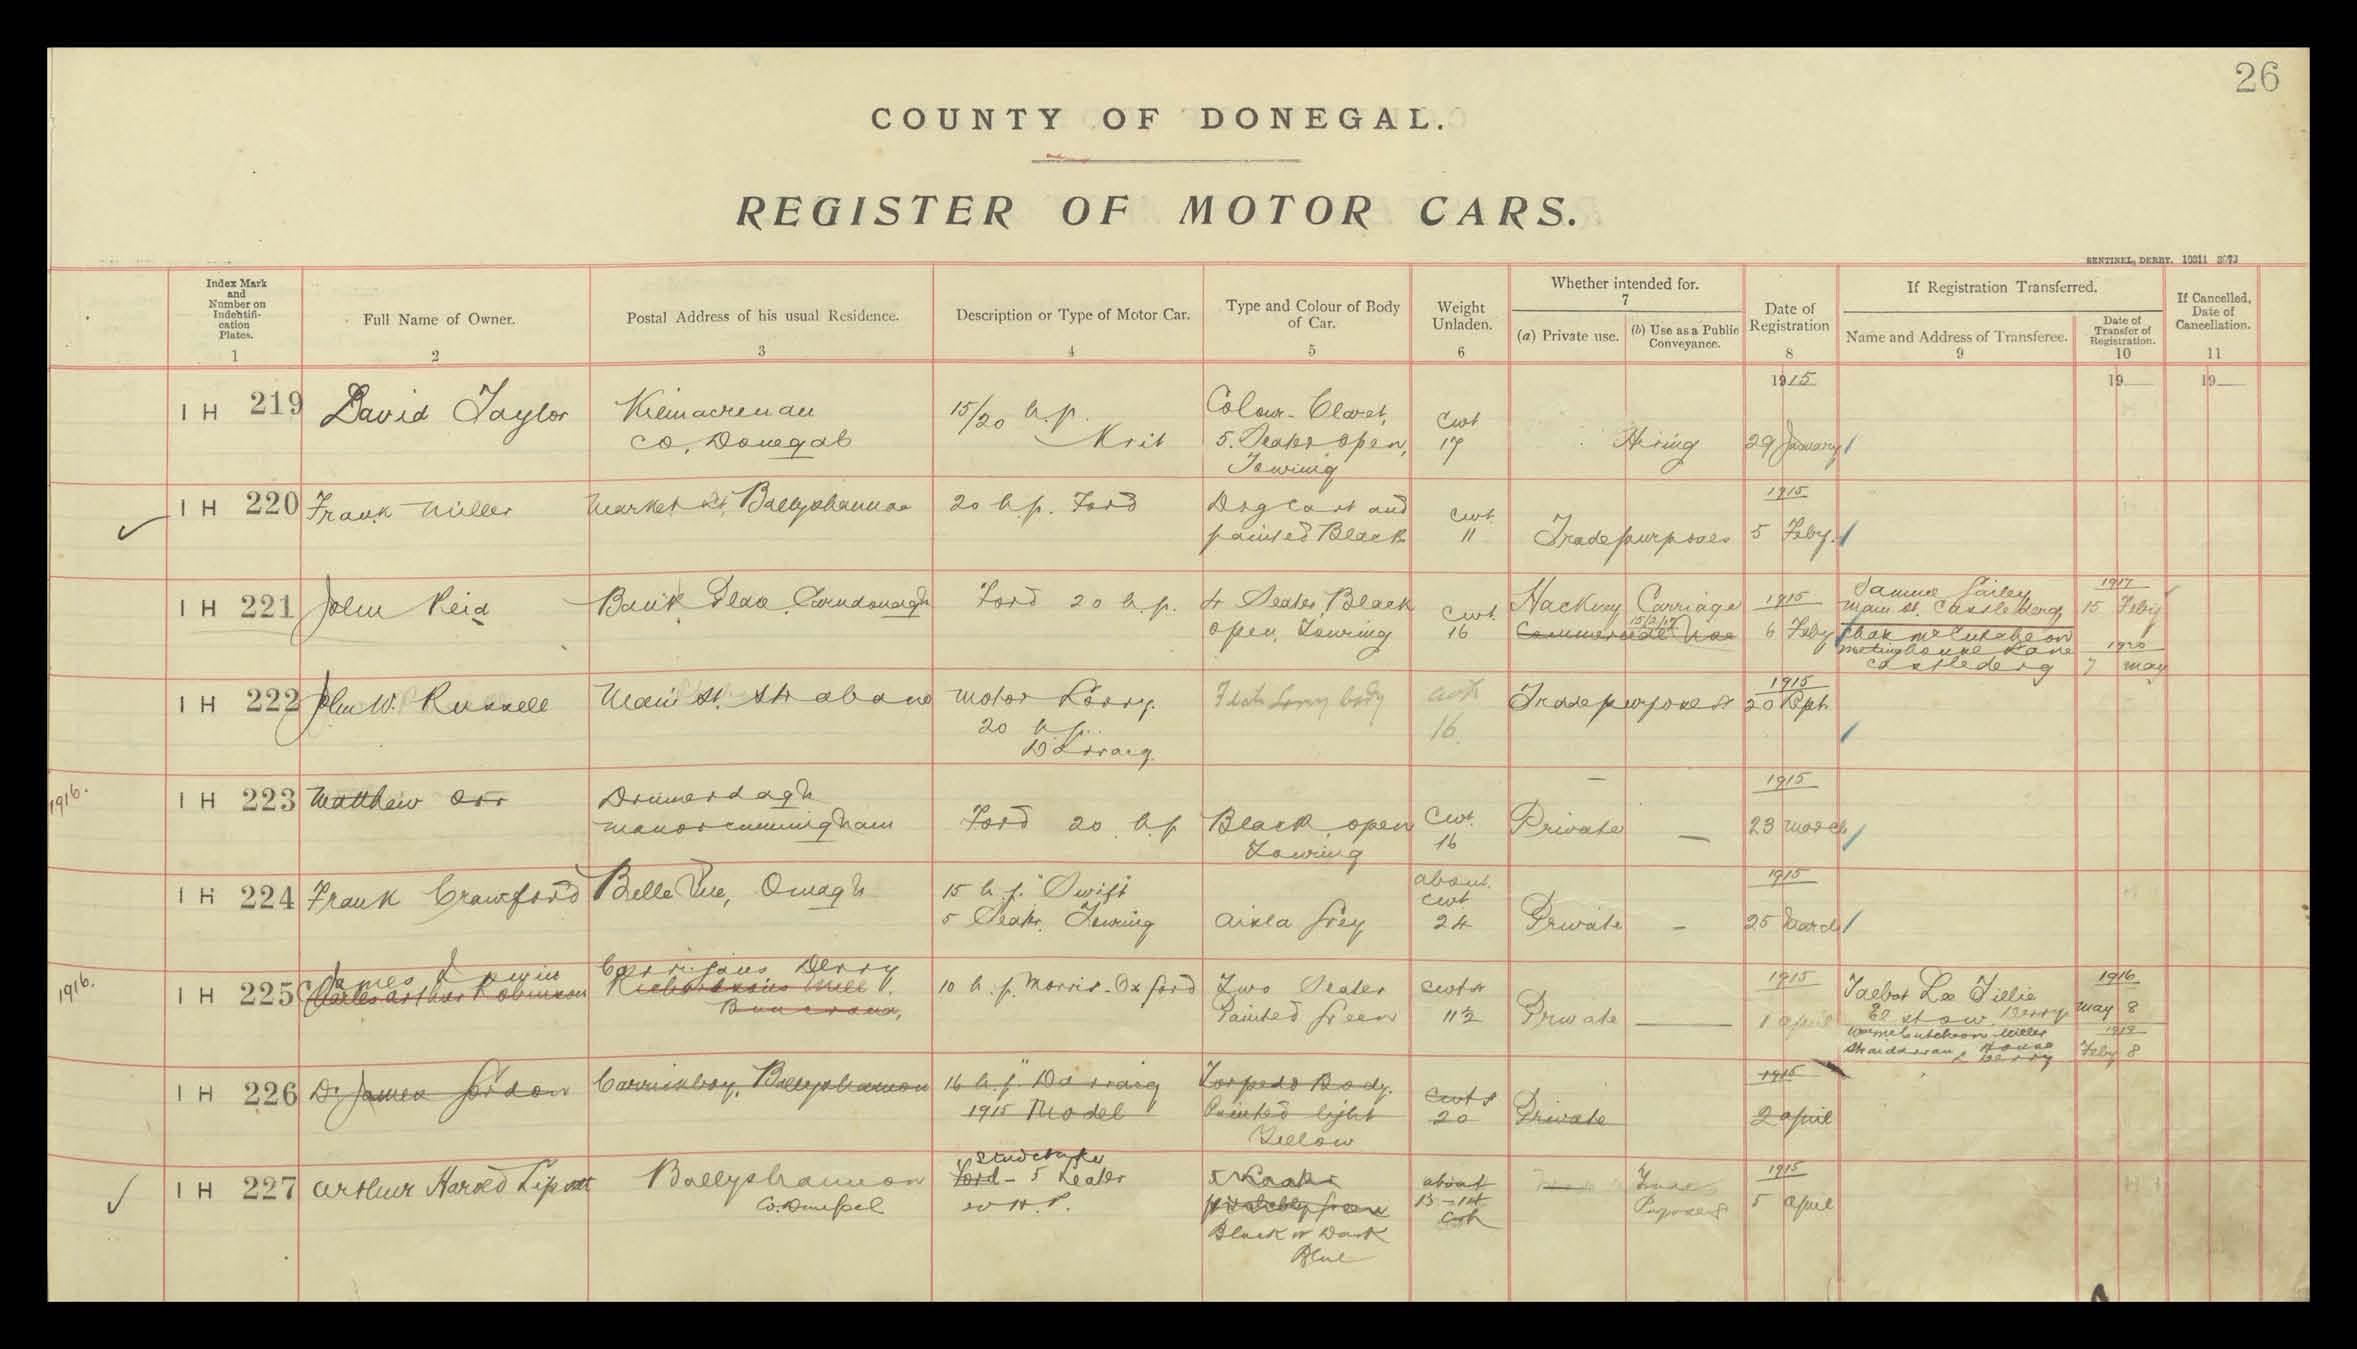 26
COUNTY OF DONEGAL.
REGISTER OF MOTOR CARS.
SENTINEL, DERRY. 10311 3073
Index Mark
and
Number on
Indentifi-
cation
Plates.
1
Full Name of Owner.
2
Postal Address of his usual Residence.
3
Description or Type of Motor Car.
4
Type and Colour of Body
of Car.
5
Weight
Unladen.
6
Whether intended for.
7
(a) Private use.
(b) Use as a Public
Conveyance.
Date of
Registration
8
If Registration Transferred.
Name and Address of Transferee.
9
Date of
Transfer of
Registration.
10
If Cancelled,
Date of
Cancellation.
11
1915
19
19
I H 219 David Taylor
Kilmacrenan
Co. Donegal
15/20 h.p.
Krit
Colour - Claret,
5. Seater open,
Touring
Cwt
17
Hiring
29 January
I H 220 Frank Miller
Market St, Ballyshannon
20 h.p. Ford
Dog Cart and
painted Black
Cwt.
11
Trade purposes
1915
5 Feby.
I H 221 John Reid
Bank Place, Carndonagh
Ford 20 h.p.
4 Seater, Black
open, Touring
Cwt.
16
Hackney Carriage
15/2/17
Commercial Use
1915
6 Feby
Samuel Gailey
Main St. Castlederg,
1917
15 Feby
McCutcheon
Meetinghouse Lane
Castlederg
1920
7 May
I H 222 John W. Russell
Main St. Strabane
Motor Lorry.
20 h.p.
Darracq.
Flat Lorry body
cwt
16
Trade purposes
1915
20 Sept.
1916.
I H 223 Matthew Orr
Manorcunningham
Ford 20 h.p
Black open
Touring
Cwt.
16
Private —
1915
23 March
I H 224 Frank Crawford
Belle Vue, Omagh
15 h.p. "Swift"
5 Seater, Touring
Grey
about
cwt.
24
Private —
1915
25 March
1916.
I H 225
James Irwin
Charles Arthur Robinson
Carrigans Derry
Richardsons Mill
Buncrana,
10 h.p. Morris-Oxford
Two Seater
Painted Green
cwts
11½
Private —
1915
1 April
Talbot Lee Tillie
Derry
1916
May 8
House
Derry
Feby 8
I H 226 Dr James Gordon
Ballyshannon
16 h.p. "Darracq
1915 Model
Torpedo Body.
Painted light
Yellow
Cwts
20
Private
1915
2 April
I H 227 Arthur Harold Lipsett
Ballyshannon
Co. Donegal
Studebaker
Ford - 5 Seater
20 H.P.
Black or Dark
Blue
about
13 - 1st
Cwt
Trade
Purposes
1915
5 April